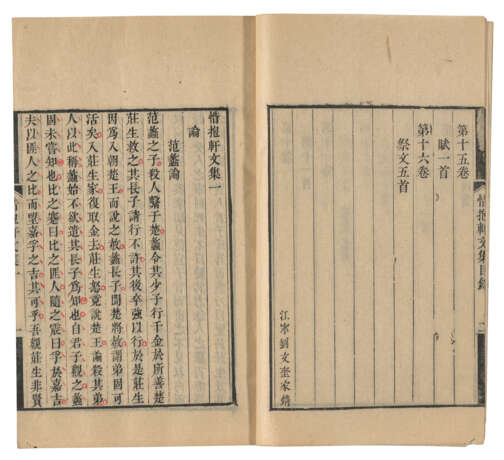 第十五卷
賦一首
第十六卷
祭文五首
江寧劉文奎家鐫
惜抱軒文集目錄
惜抱軒文集一
論
范蠡論
范蠡之子殺人繫于楚蠡令其少子行千金於所善楚
莊生救之其長子請行不許其後卒強以行於是莊生
因爲入朝楚王而說之赦蠡長子聞楚將赦謂弟固可
活矣入莊生家復取金去莊生怒竟說楚王論殺其弟
人以此稱蠡始不欲遣其長子爲知也自君子觀之蠡
固未嘗知也比之蹇曰比之匪人隨之震曰孚於嘉吉
夫以匪人之比而望嘉孚之吉其可乎吾觀莊生非賢